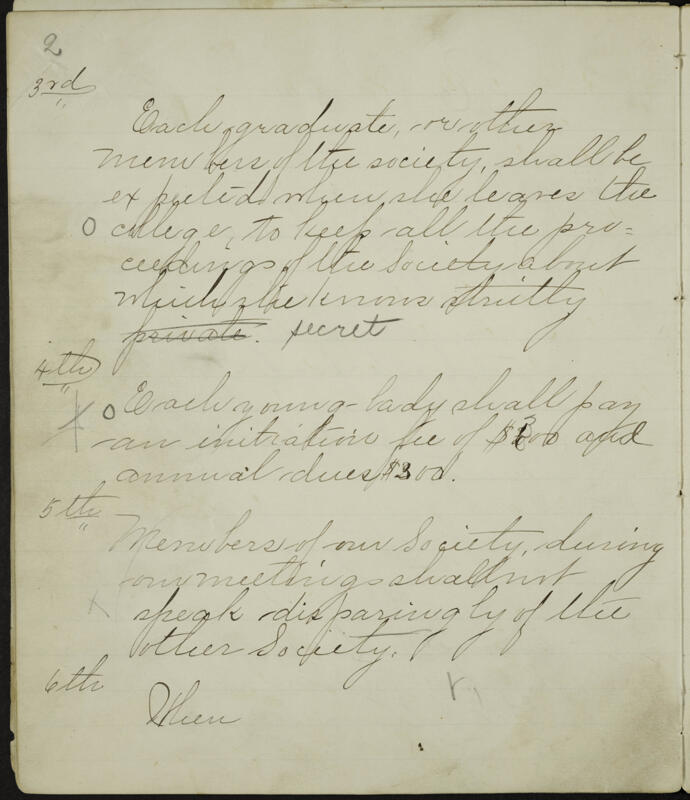 2
3rd
Each graduate, or other
members of the society, shall be
expected when she leaves the
O college, to keep all the pro=
ceedings of the Society about
which she knows strictly
private. secret
4th
O Each young lady shall pay
an initiation fee of $3.00 and
annual dues $3.00.
5th
Members of our Society, during
our meetings shall not
x speak disparingly of the
other Society.
6th
When